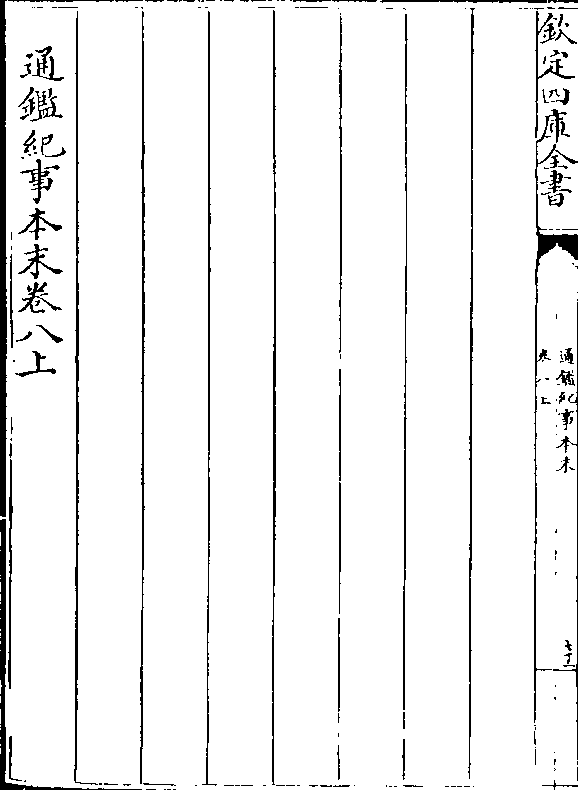 欽定四庫全書
通鑑紀事本末
卷八上
七十一
通鑑紀事本末卷八上